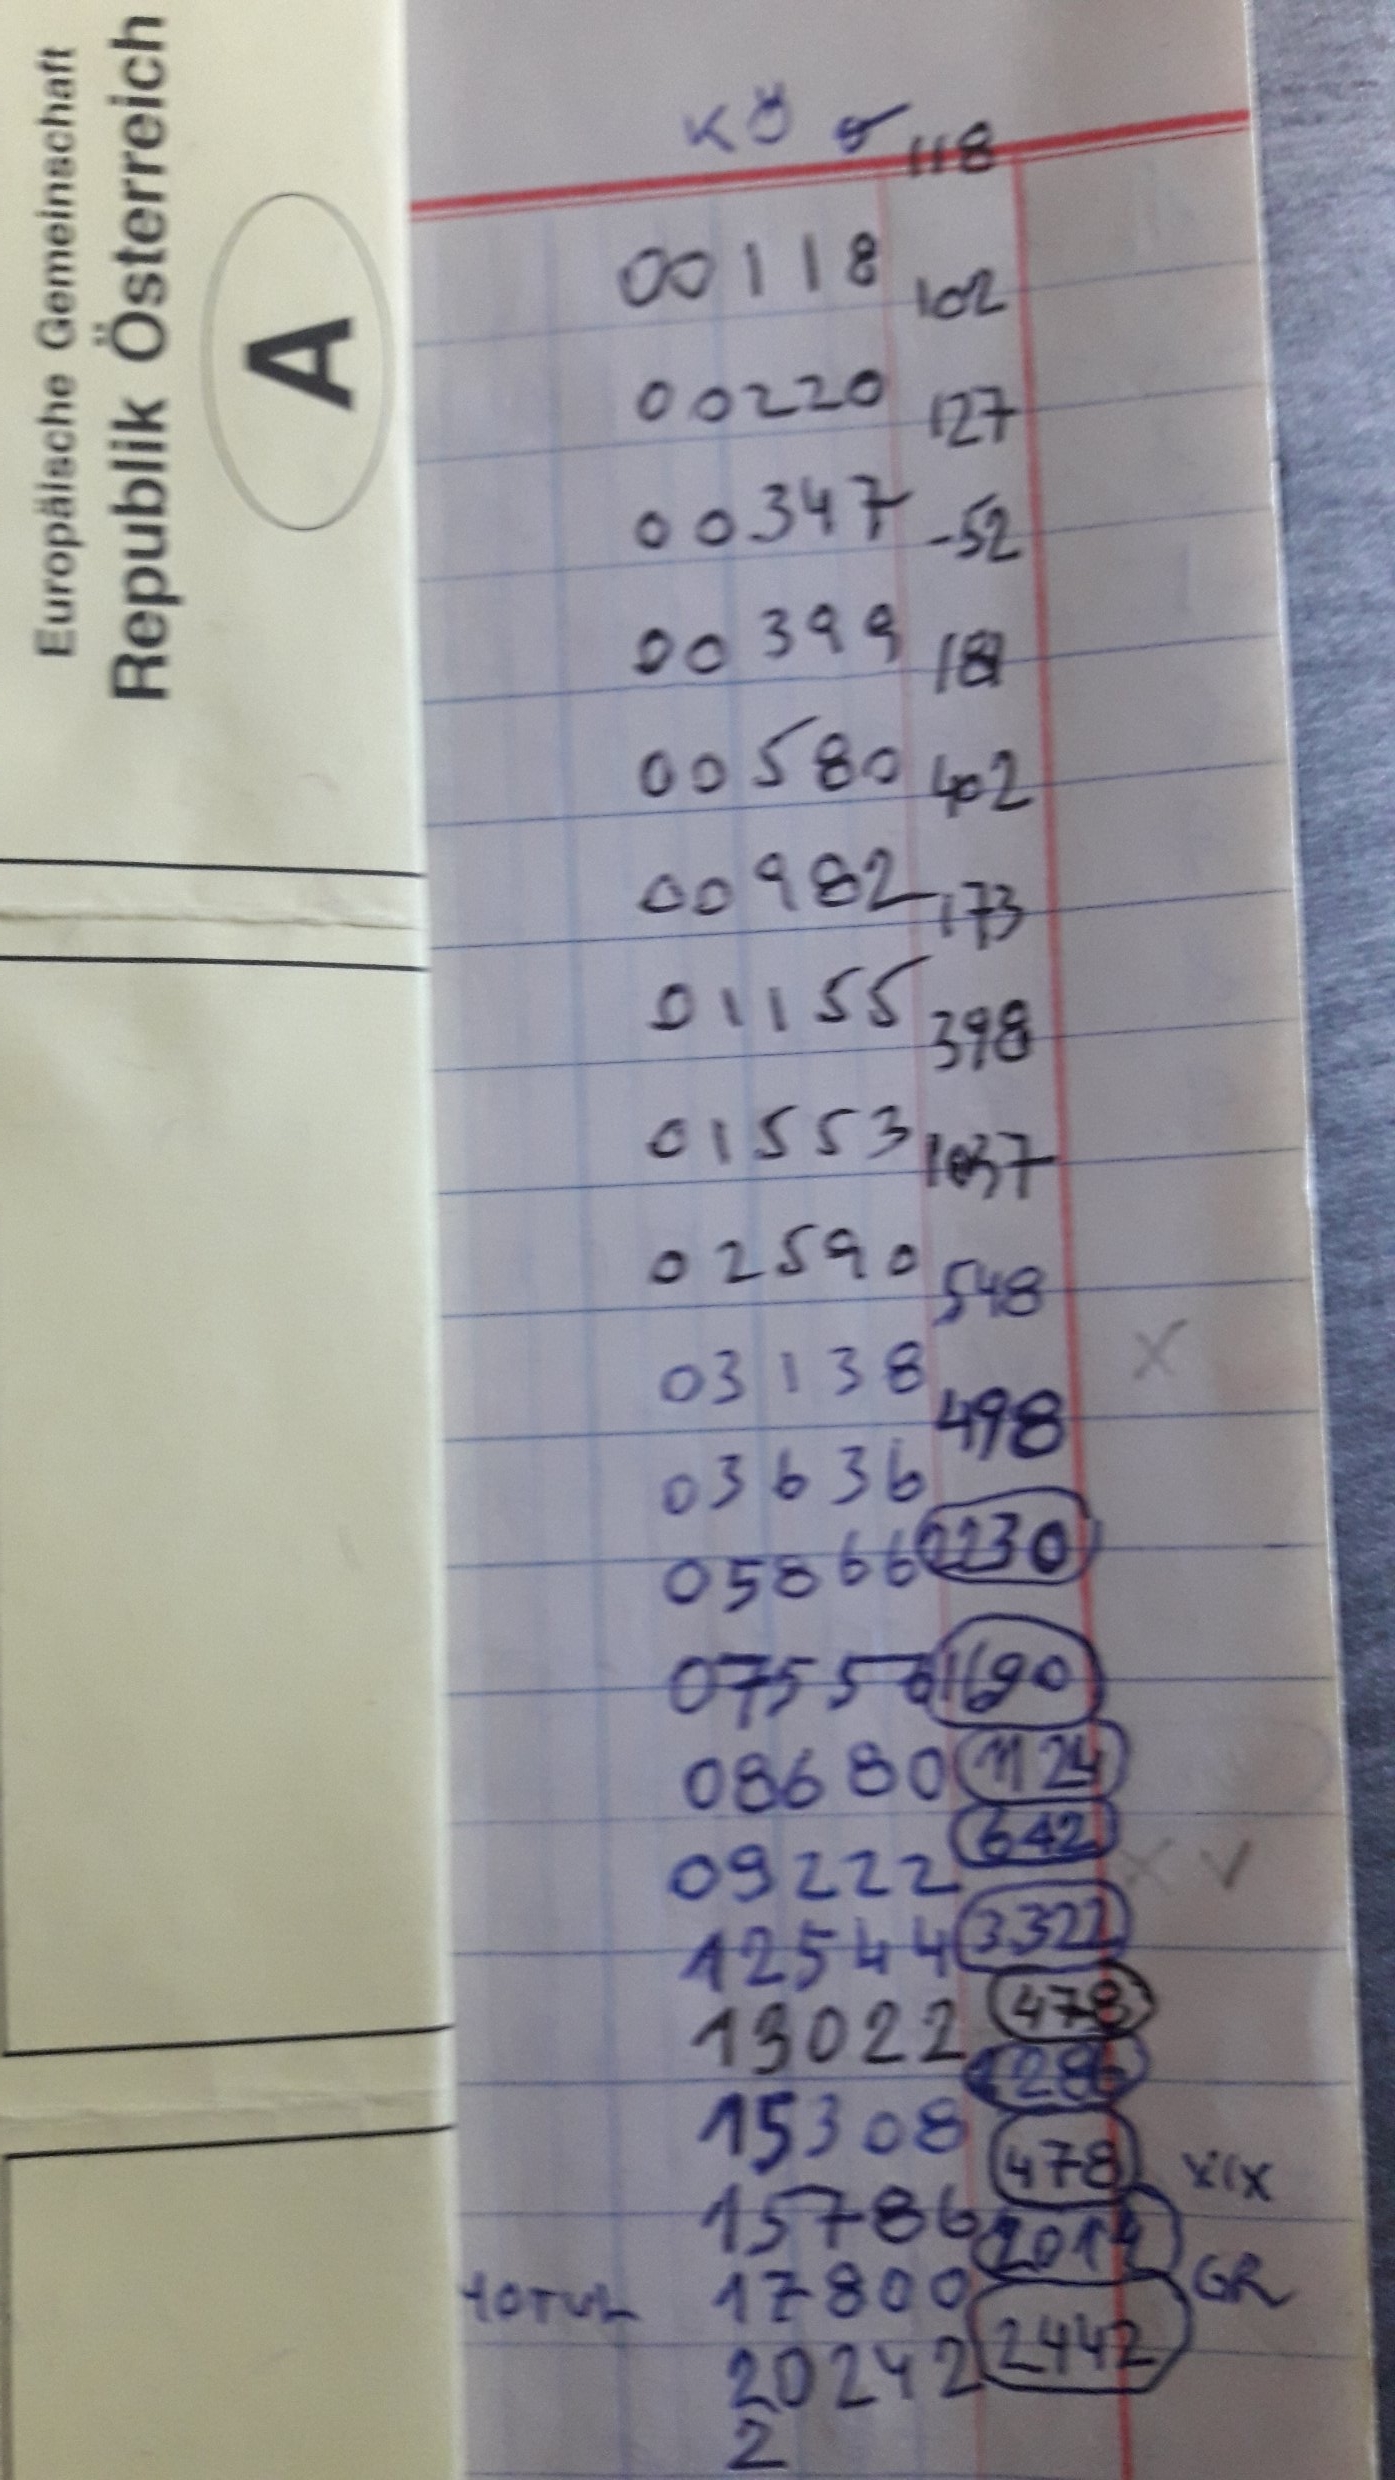 Europäische Gemeinschaft
Republik Österreich
A
118
00118
102
00220
127
00347
-52
00399
181
00580
402
00982
173
01155
398
01553
1037
02590
548
03138
X
498
03636
2230
05866
1690
07556
1124
08680
642
09222
X V
3322
12544
478
13022
2286
15308
478
XIX
15786
2014
17800
GR
2442
20242
2